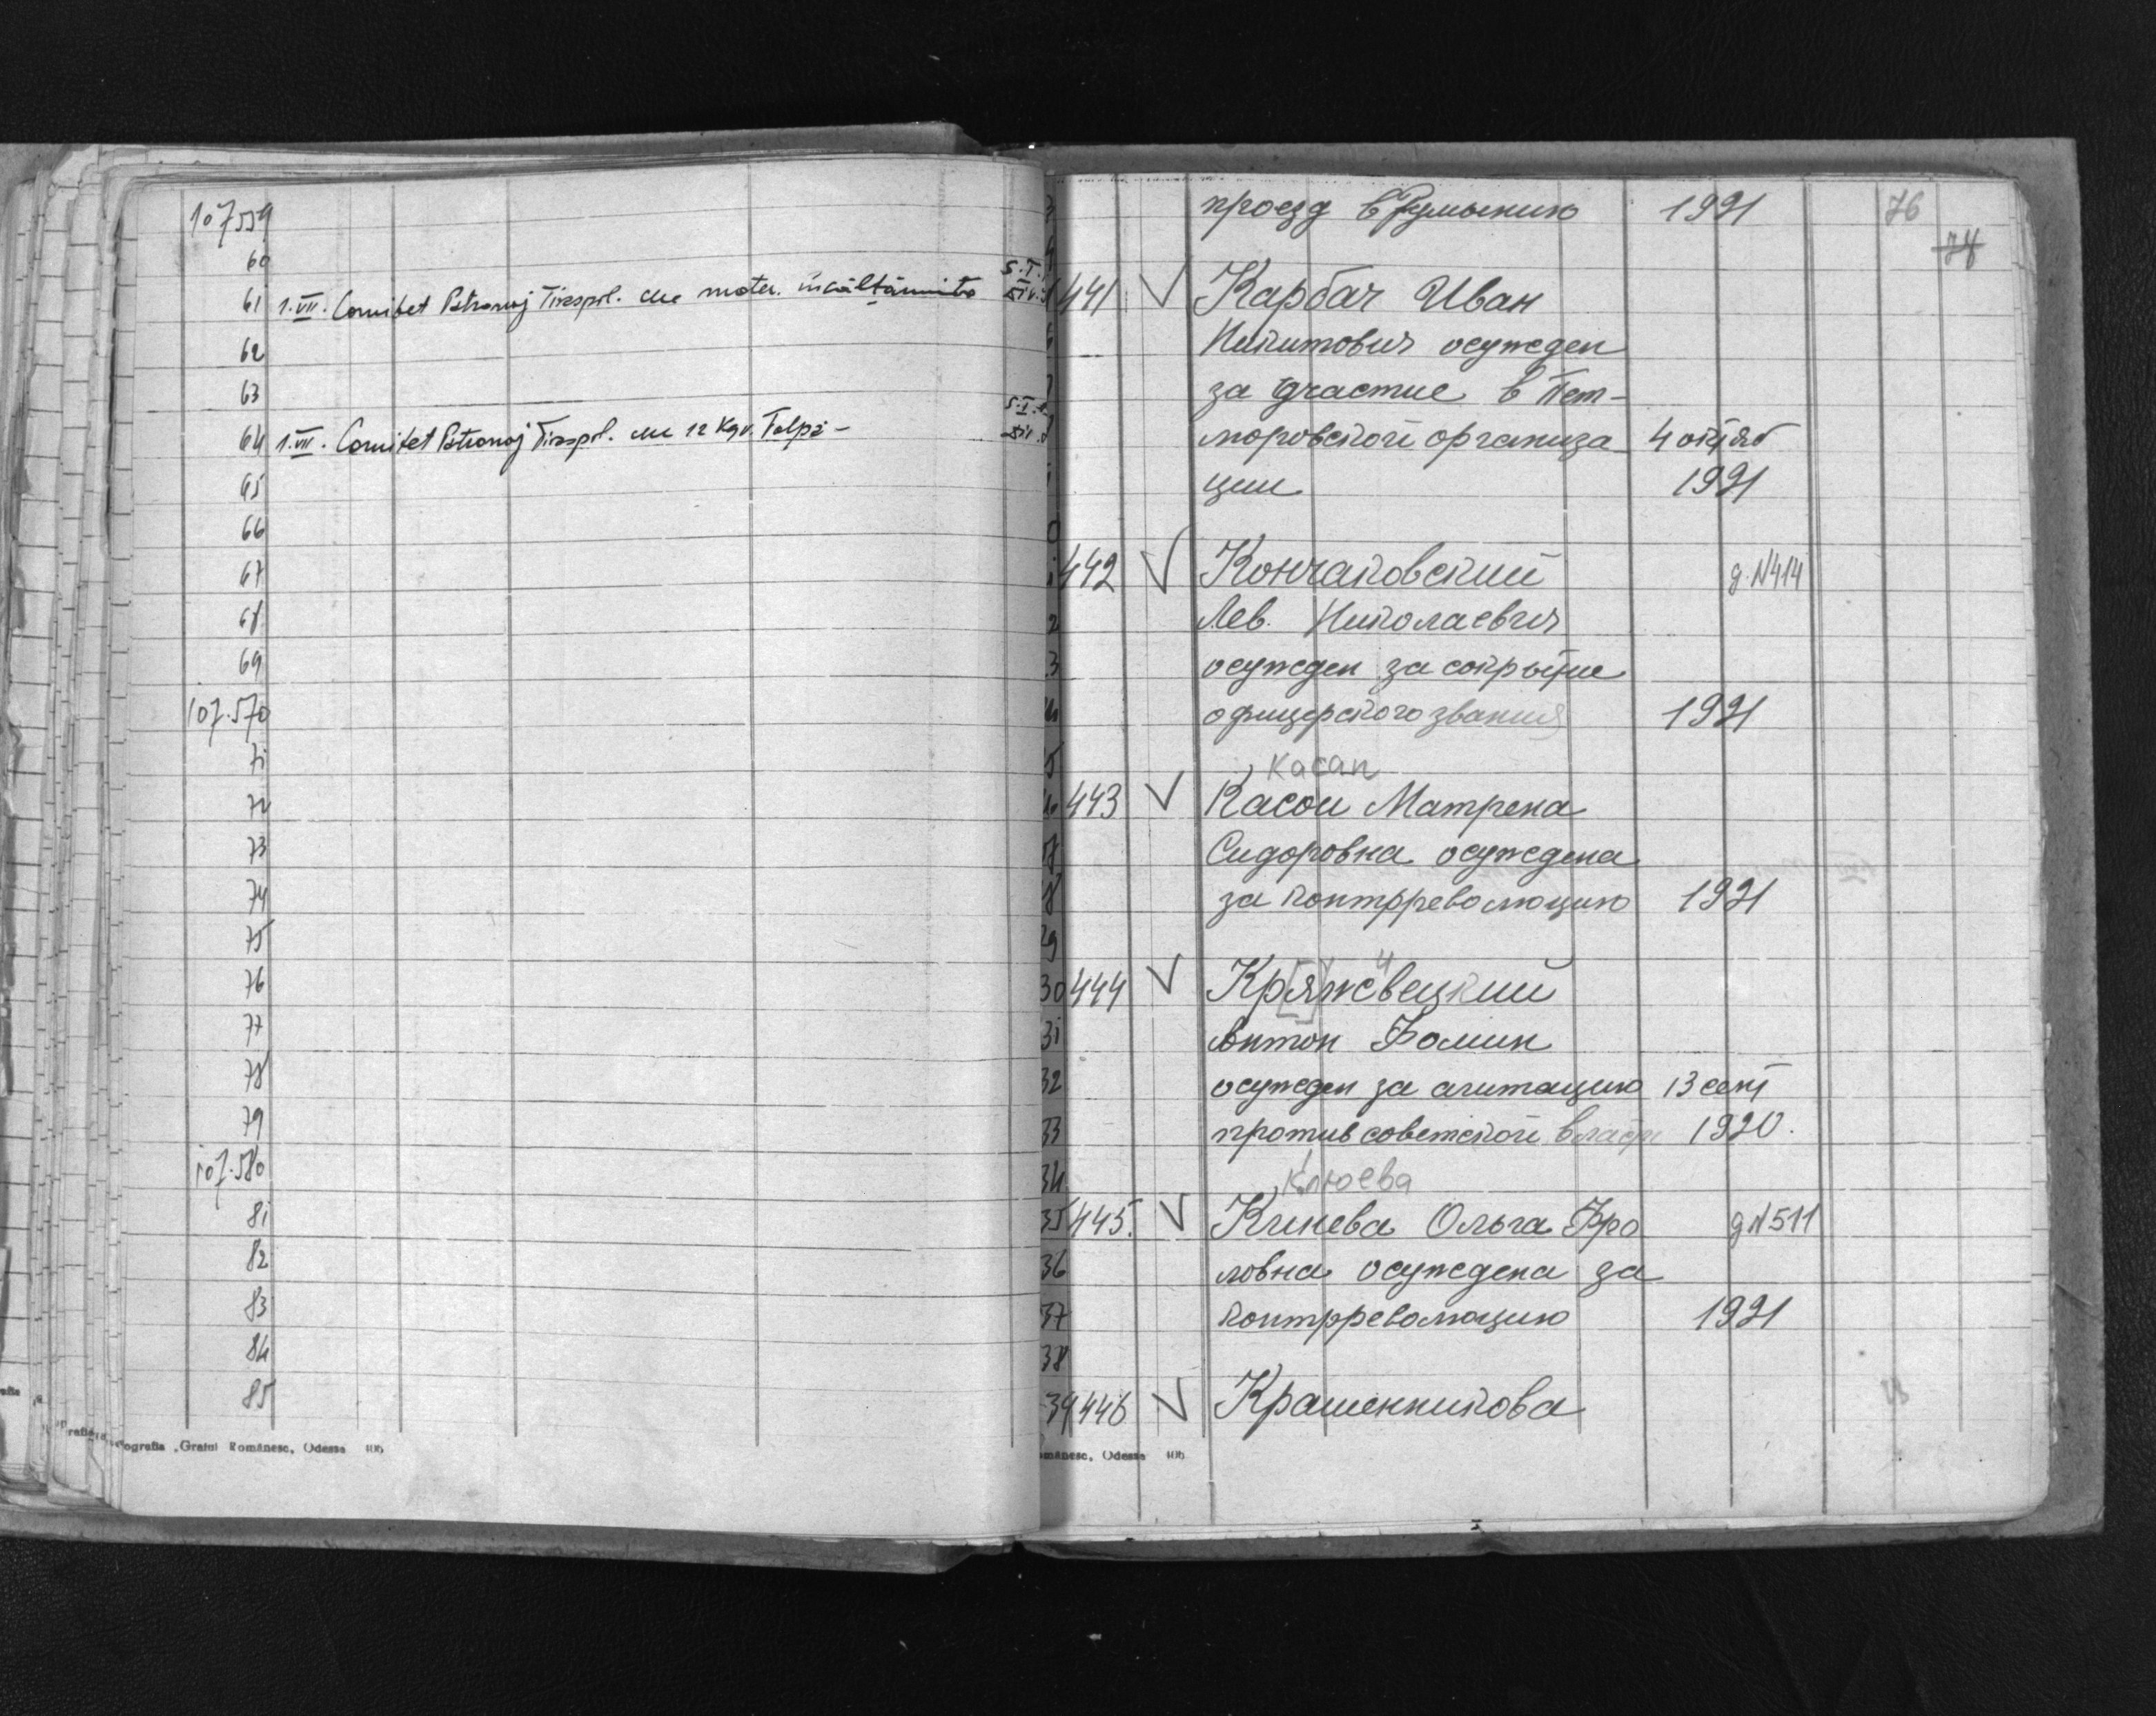 107559
60
61 1.VII. Comitet Patronaj Tiraspol. cu mater. încălțăminte
62
63
64 1.VII. Comitet Patronaj Tiraspol. cu 12 Kgv. Talpă -
65
66
67
68
69
107.570
71
72
73
74
75
76
77
78
79
107.580
81
82
83
84
85
ografia „Graiul Românesc, Odessa 406
проезд в Румынию 1921 76
74
441 V Карбач Иван
Никитович осужден
за участие в Пет-
люровской организа- 4 октяб
ции 1921
442 V Кончаковский д.N414
Лев. Николаевич
осужден за сокрытие
офицерского звания 1921
Касап
443 V Касои Матрена
Сидоровна осуждена
за контрреволюцию 1921
и
30 444 V Кр[я]жевецкий
31 Антон Фомин
32 осужден за агитацию 13 сент
33 против советской власти 1920.
34 Клюева
35 445. V Кинева Ольга Фро д.N511
36 ловна осуждена за
37 контрреволюцию 1921
38
39 446 V Крашенникова
omânesc, Odessa 406